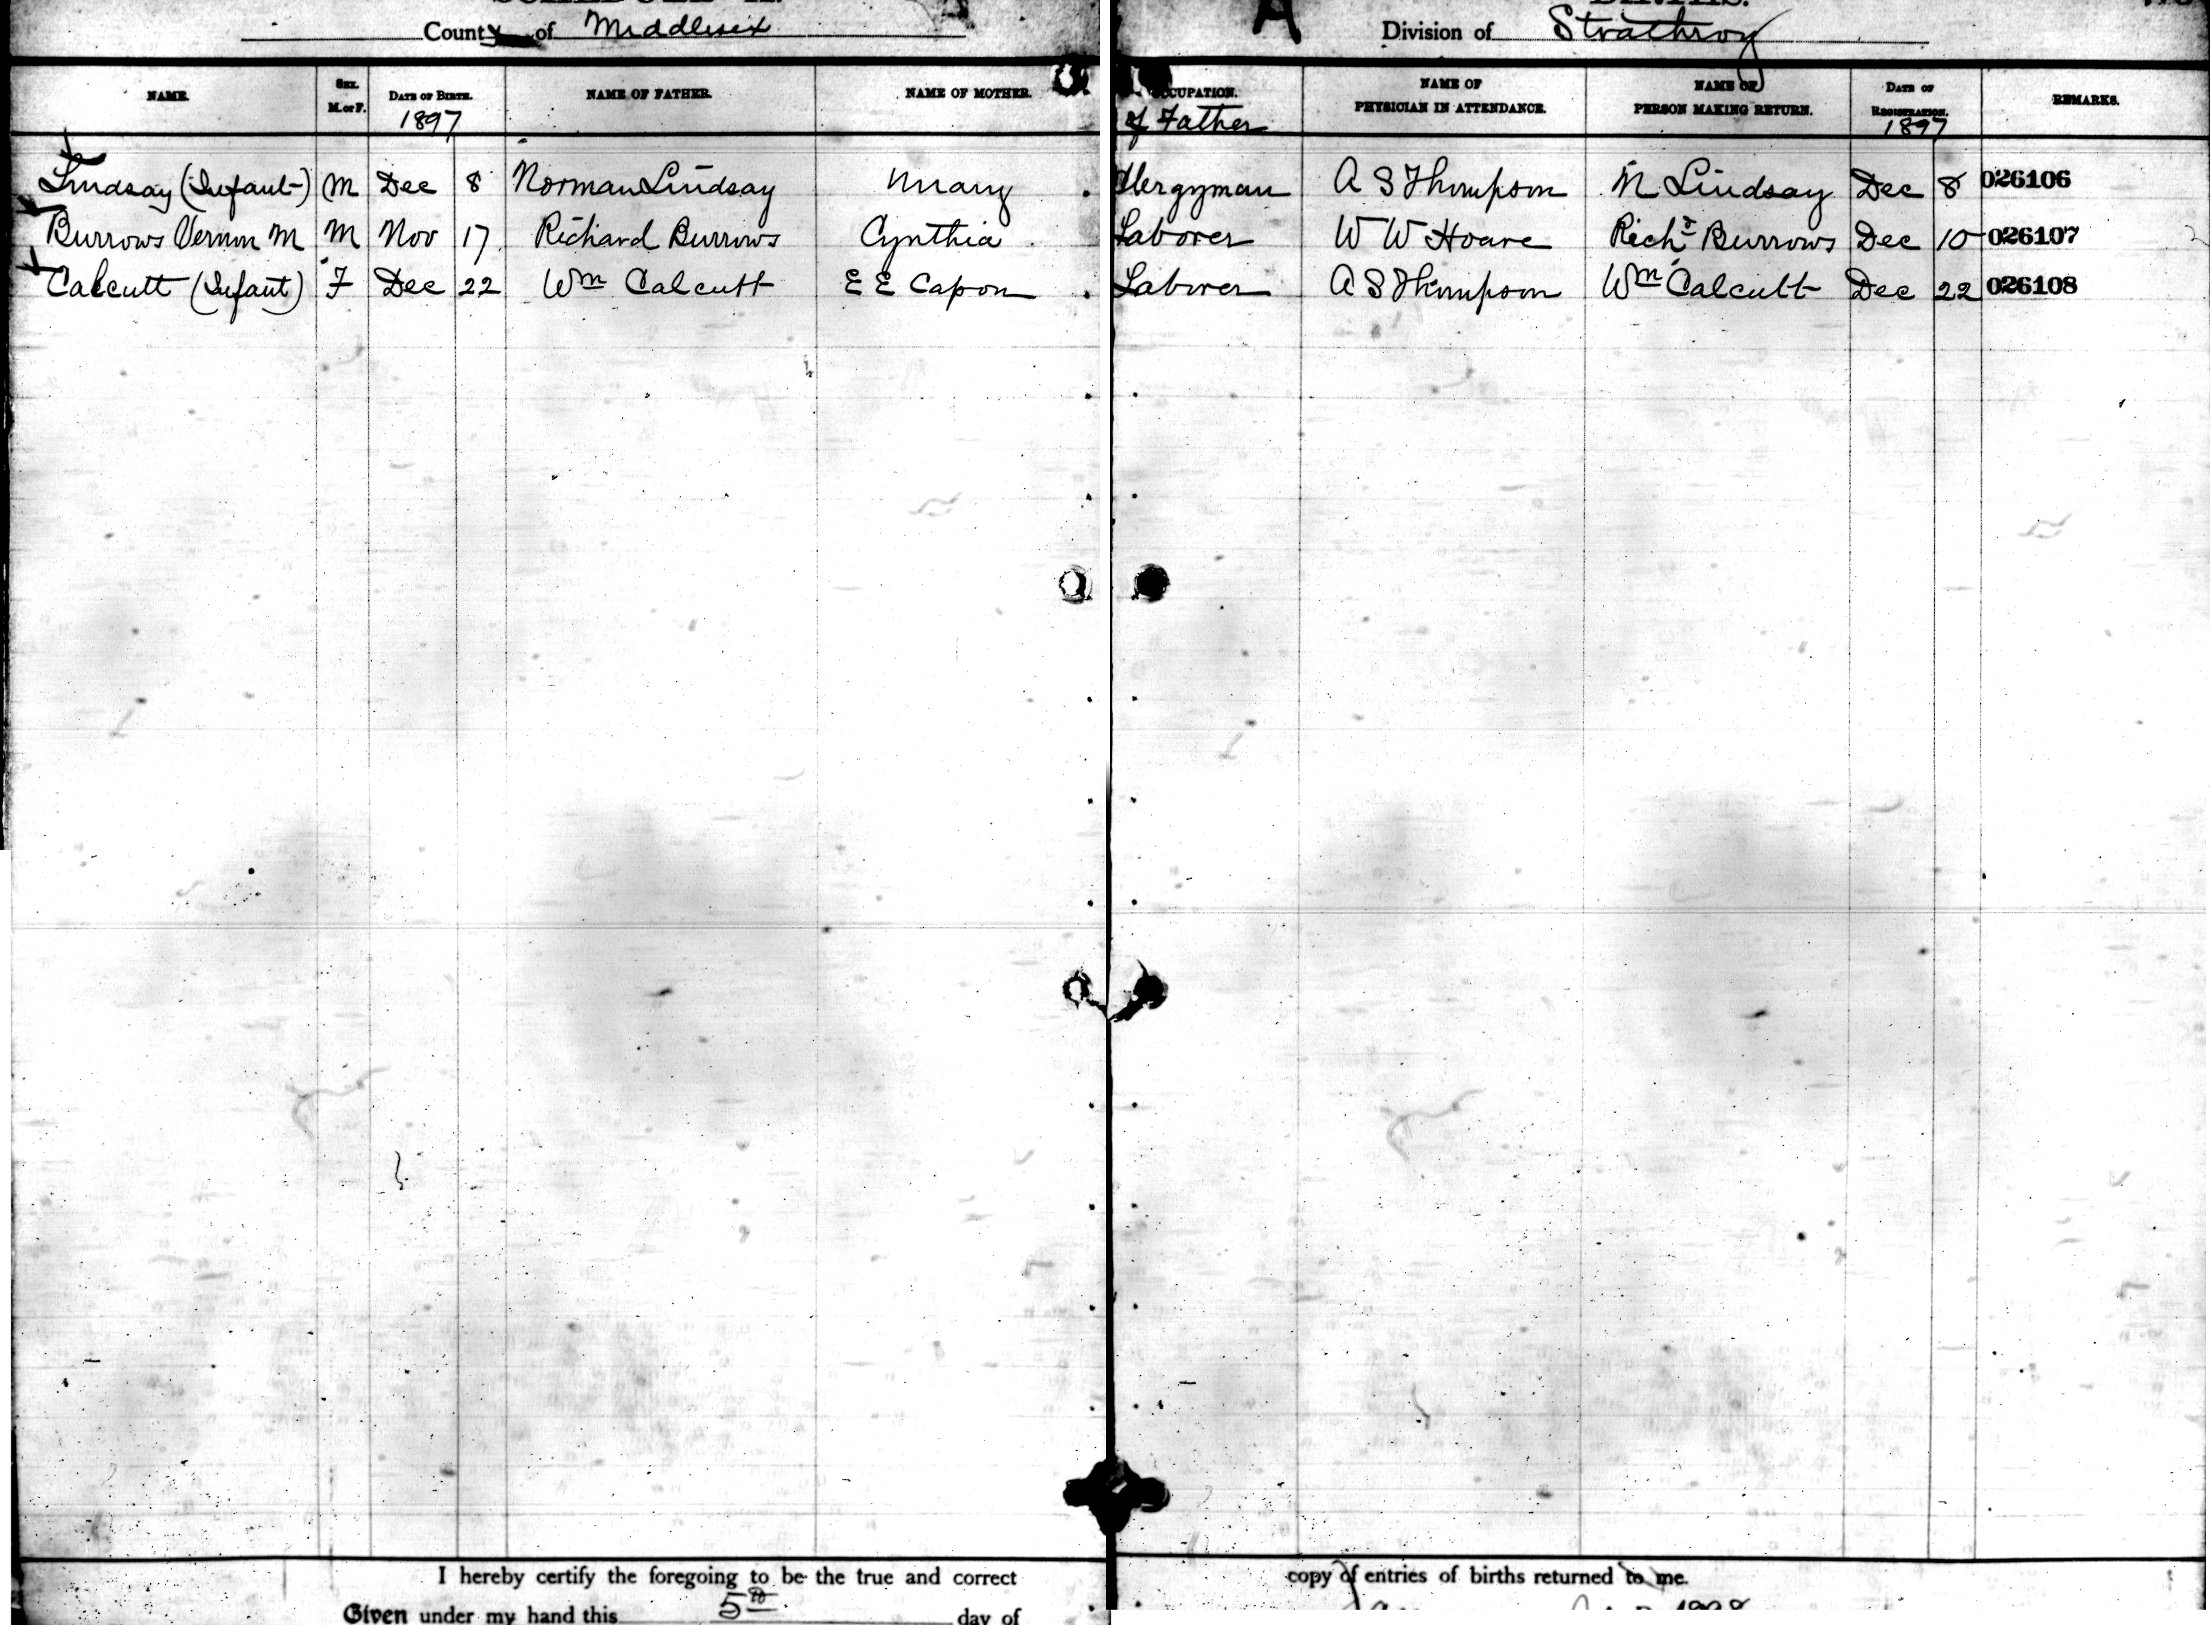 County of Middlesex
A Division of Strathroy
NAME. SEX. M. or F. DATE OF BIRTH. 1897 NAME OF FATHER. NAME OF MOTHER. OCCUPATION. of Father NAME OF PHYSICIAN IN ATTENDANCE. NAME OF PERSON MAKING RETURN. DATE OF REGISTRATION. 1897 REMARKS.
Lindsay (Infant) M Dec 8 Norman Lindsay Mary Clergyman A S Thompson N Lindsay Dec 8 026106
Burrows Vernon M M Nov 17 Richard Burrows Cynthia Laborer W W Hoare Richd Burrows Dec 10 026107
Calcutt (Infant) F Dec 22 Wm Calcutt E E Capon Laborer A S Thompson Wm Calcutt Dec 22 026108
I hereby certify the foregoing to be the true and correct copy of entries of births returned to me.
Given under my hand this 5th day of